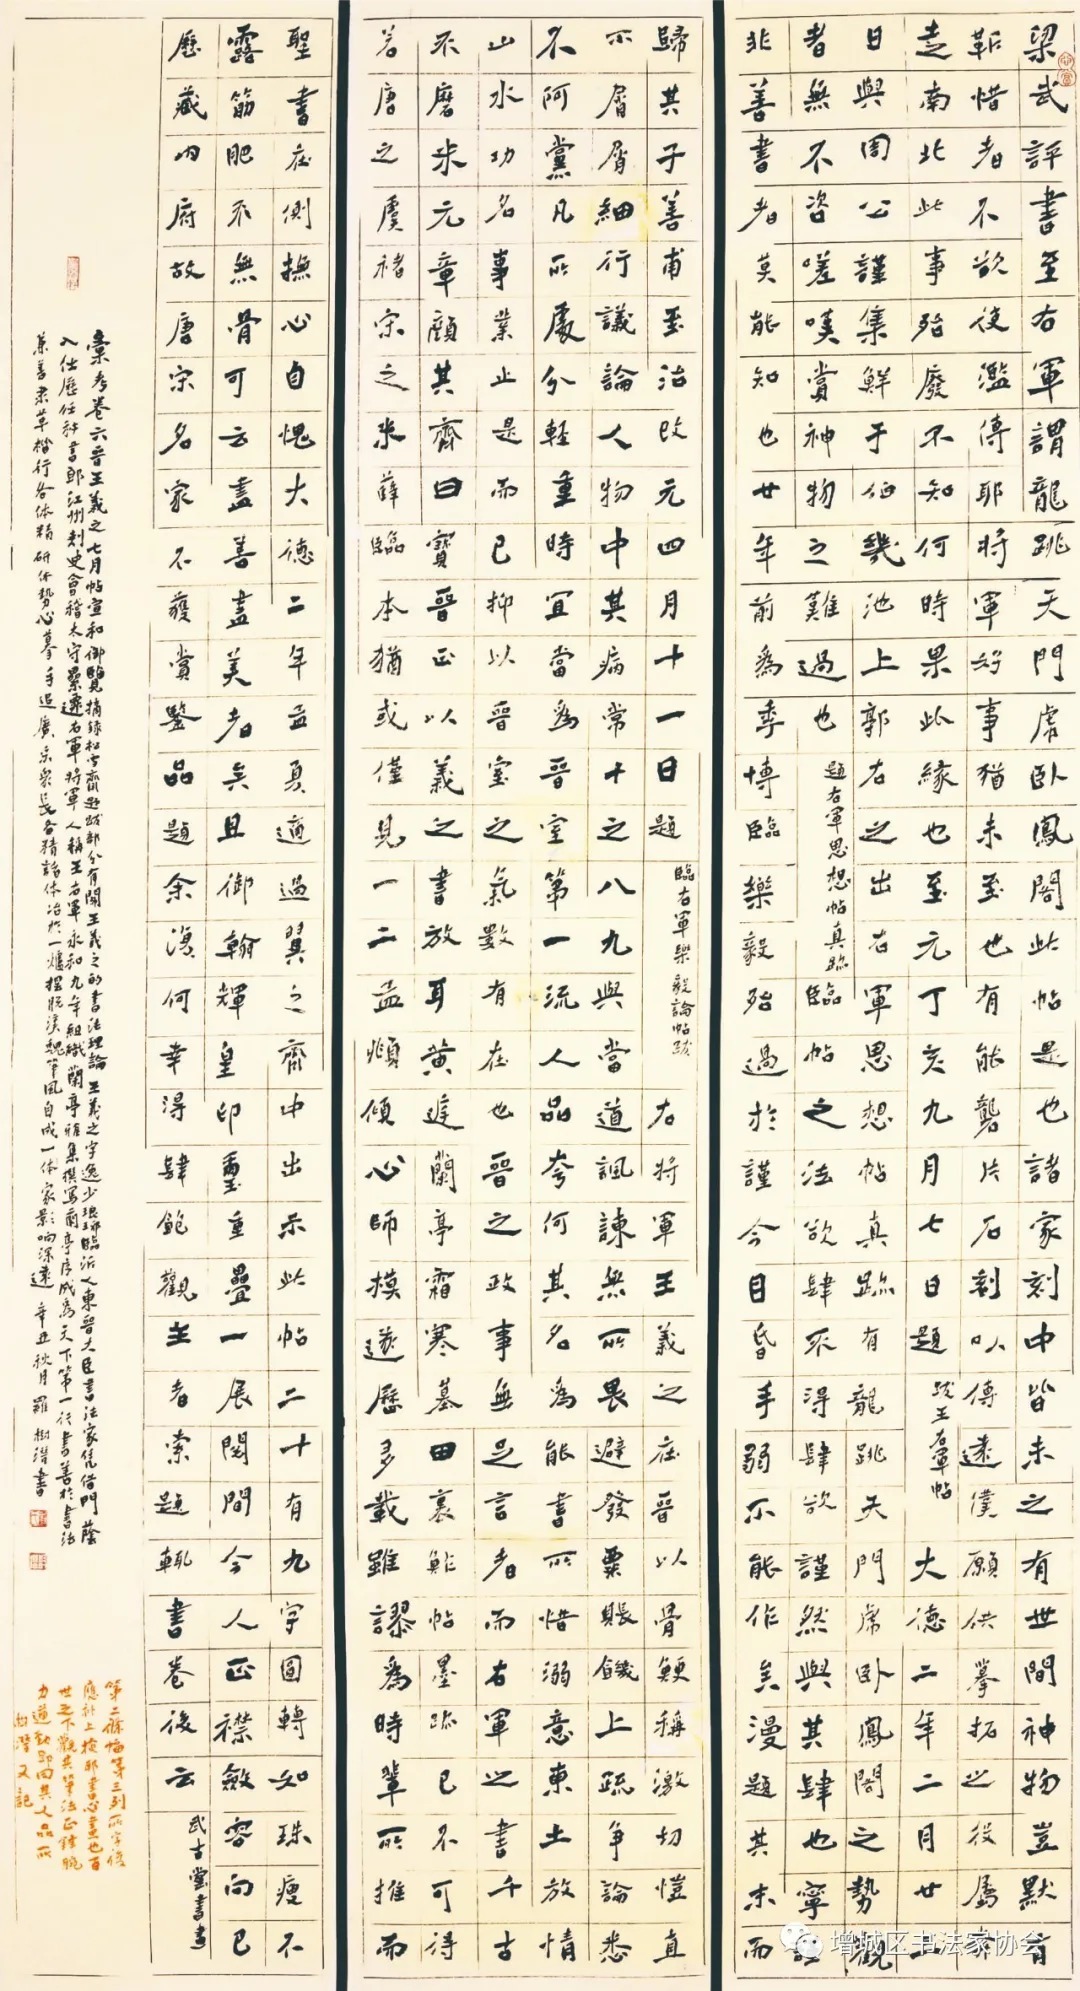 梁武評書至右軍謂龍跳天門虎臥鳳閣此帖是也諸家刻中皆未之有世間神物豈默有
靳惜者不欲後濫傳耶將軍好事猶未至也有能礱片石刻以傳遠僕願供摹拓之役屬
走南北此事殆廢不知何時果此緣也至元丁亥九月七日題
跋王右軍帖
大德二年二月廿
日與周公謹集鮮于伯幾池上郭右之出右軍思想帖真跡有龍跳天門虎臥鳳閣之勢觀
者無不咨嗟嘆賞神物之難過也
題右軍思想帖真跡
臨帖之法欲肆不得肆欲謹然與其肆也寧謹
非善書者莫能知也廿年前為季博臨樂毅殆過於謹今目昏手弱不能作矣漫題其末而
歸其子善甫至治改元四月十一日題
臨右軍樂毅論帖跋
右將軍王羲之在晉以骨鯁稱激切愷直
不屑屑細行議論人物中其病常十之八九與當道諷諫無所畏避發粟賑饑上疏爭論悉
不阿黨凡所處分輕重時宜當為晉室第一流人品夸何其名為能書所惜溺意東土放情
山水功名事業止是而已抑以晉室之氣數有在也晉之政事無足言者而右軍之書千古
不磨米元章顏其齋曰寶晉正以羲之書放耳黃庭蘭亭霜寒墓田裹鮓帖墨跡已不可得
若唐之虞褚宋之米薛臨本猶或僅見一二孟頫傾心師模遂歷多載雖謬為時輩所推而
聖書在側撫心自愧大德二年孟夏適過翼之齋中出示此帖二十有九字圓轉如珠瘦不
露筋肥不無骨可云盡善盡美者矣且御翰輝皇印璽重疊一展閱間令人正襟斂容向已
歷藏內府故唐宗名家不獲賞鑒品題余溟何幸得肆飽觀主者索題輒書卷後云
武古堂書畫
彙考卷六晉王羲之七月帖宣和御覽摘錄松雪齋題跋部分有關王羲之的書法理論王羲之字逸少琅琊臨沂人東晉大臣書法家凭借門蔭
入仕歷任秘書郎江州刺史會稽太守累遷右軍將軍人稱王右軍永和九年組織蘭亭雅集撰寫蘭亭序成為天下第一行書善於書法
兼善隶草楷行各体精研体勢心摹手追廣采衆長备精諸体冶於一爐擺脫漢魏筆風自成一体家影响深遠辛丑秋月羅樹潯書
第二條幅第三列所字後
應補上
世之下觀其筆法正鋒腕
力遒勁即同其人品所
又記
增城区书法家协会